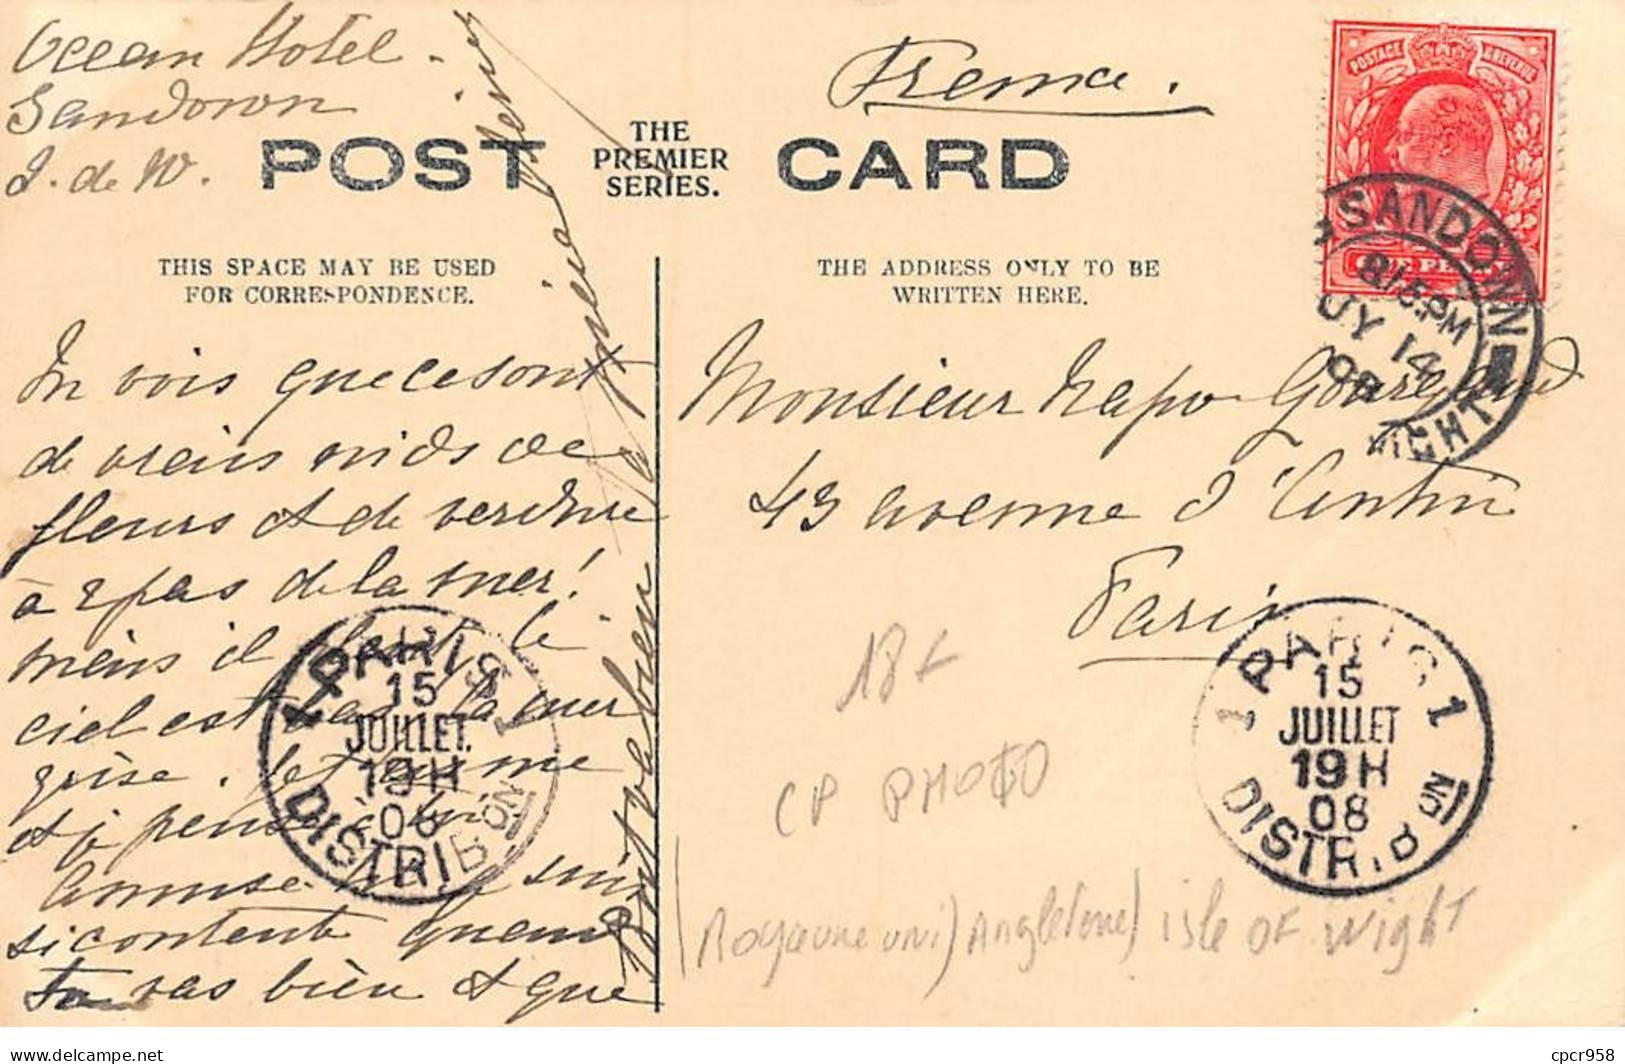 Ocean Hotel.
Sandown
I. de W.
France.
POST CARD
THE
PREMIER
SERIES.
THIS SPACE MAY BE USED
FOR CORRESPONDENCE.
THE ADDRESS ONLY TO BE
WRITTEN HERE.
POSTAGE & REVENUE
ONE PENNY
SANDOWN
8.15 PM
JY 14
08
WIGHT
Tu vois que ce sont
de vrais nids de
fleurs et de verdure
à 2 pas de la mer!
mais il pleut, le
ciel est bas la mer
grise.
et je pense à
Amuse
si contente quand
tu vas bien et que
Monsieur Napo Gourgaud
43 avenue d'Antin
Paris
1 PARIS 1
15
JUILLET
19 H
08
DISTRIBON
1 PARIS 1
15
JUILLET
19 H
08
DISTRIBON
18 €
CP PHOTO
(Royaume uni) Angleterre) isle OF Wight
cpcr958